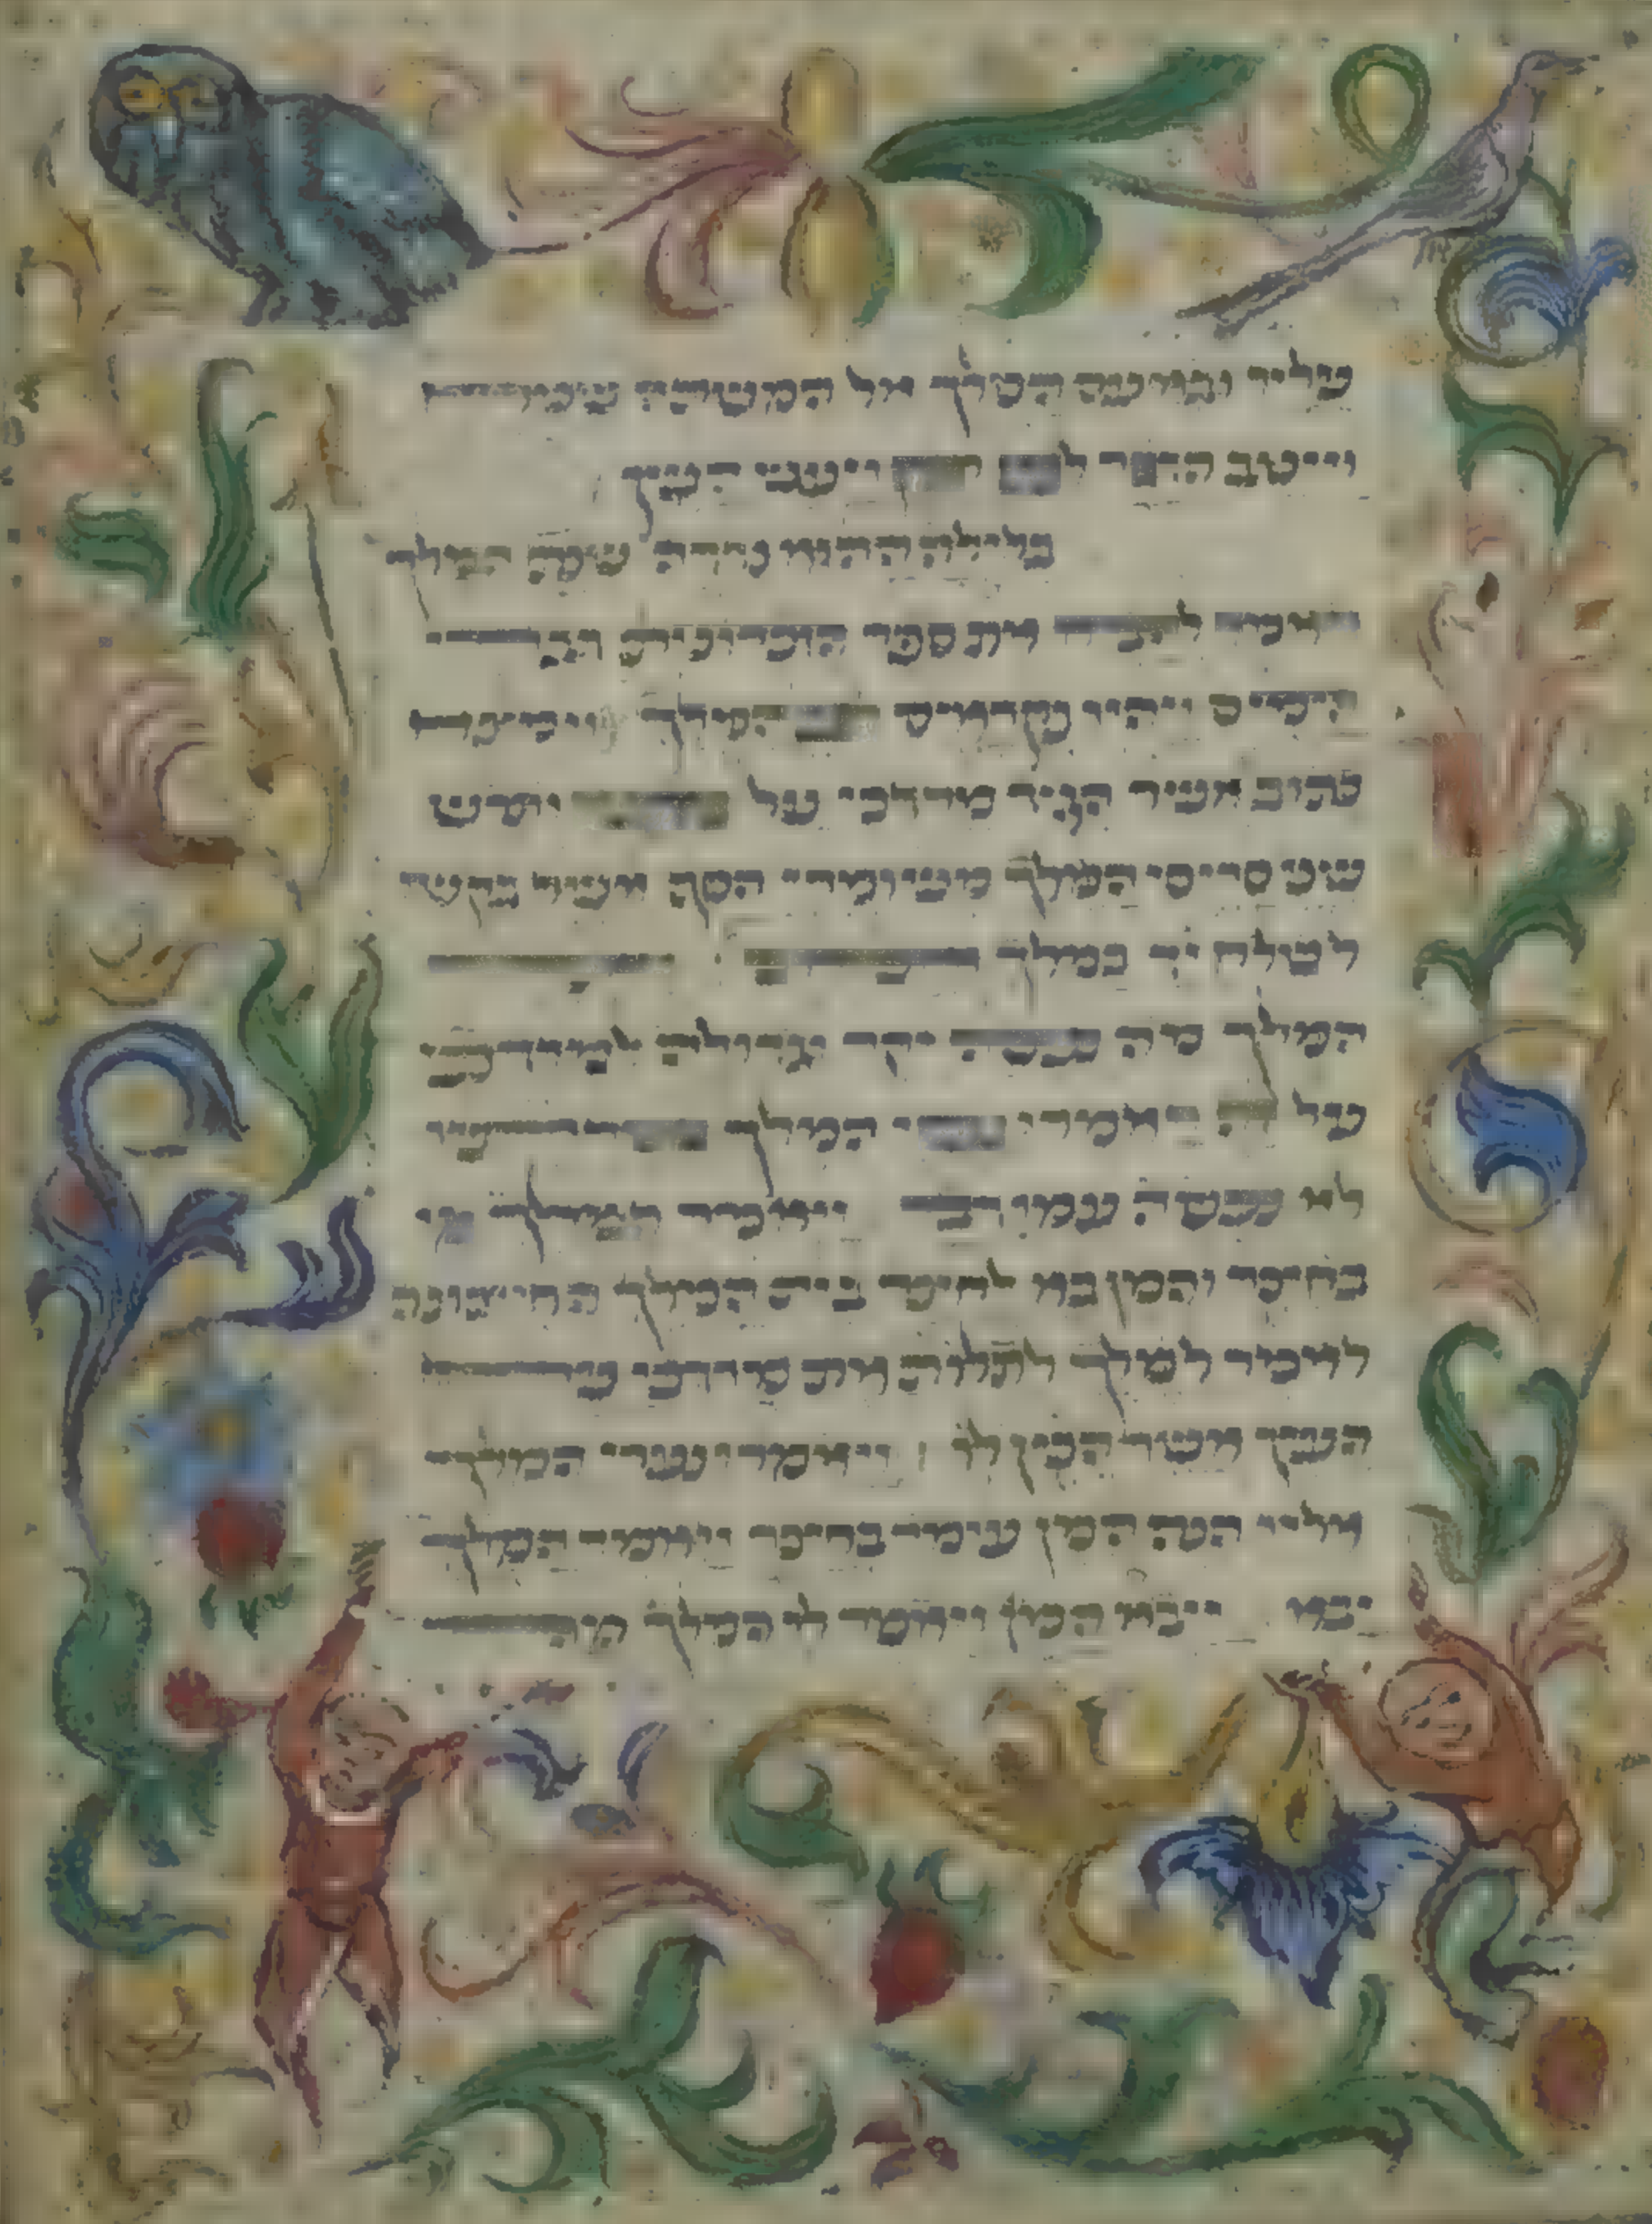 עליו ובוא עם המלך אל המשתה שמח
וייטב הדבר לפני המן ויעש העץ
בלילה ההוא נדדה שנת המלך
ויאמר להביא את ספר הזכרונות דברי
הימים ויהיו נקראים לפני המלך וימצא
כתוב אשר הגיד מרדכי על ותרש
שני סריסי המלך משומרי הסף אשר בקשו
לשלח יד במלך
המלך מה נעשה יקר וגדולה למרדכי
על זה ויאמרו נערי המלך
לא נעשה עמו דבר ויאמר המלך מי
בחצר והמן בא לחצר בית המלך החיצונה
לאמר למלך לתלות את מרדכי על
העץ אשר הכין לו ויאמרו נערי המלך
אליו הנה המן עומד בחצר ויאמר המלך
יבא ויבא המן ויאמר לו המלך מה